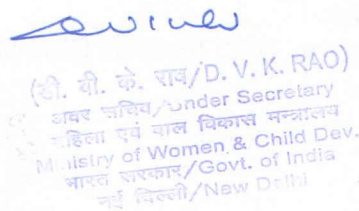 (डी. वी. के. राव/D. V. K. RAO)
अवर सचिव/Under Secretary
महिला एवं बाल विकास मन्त्रालय
Ministry of Women & Child Dev.
भारत सरकार/Govt. of India
नई दिल्ली/New Delhi